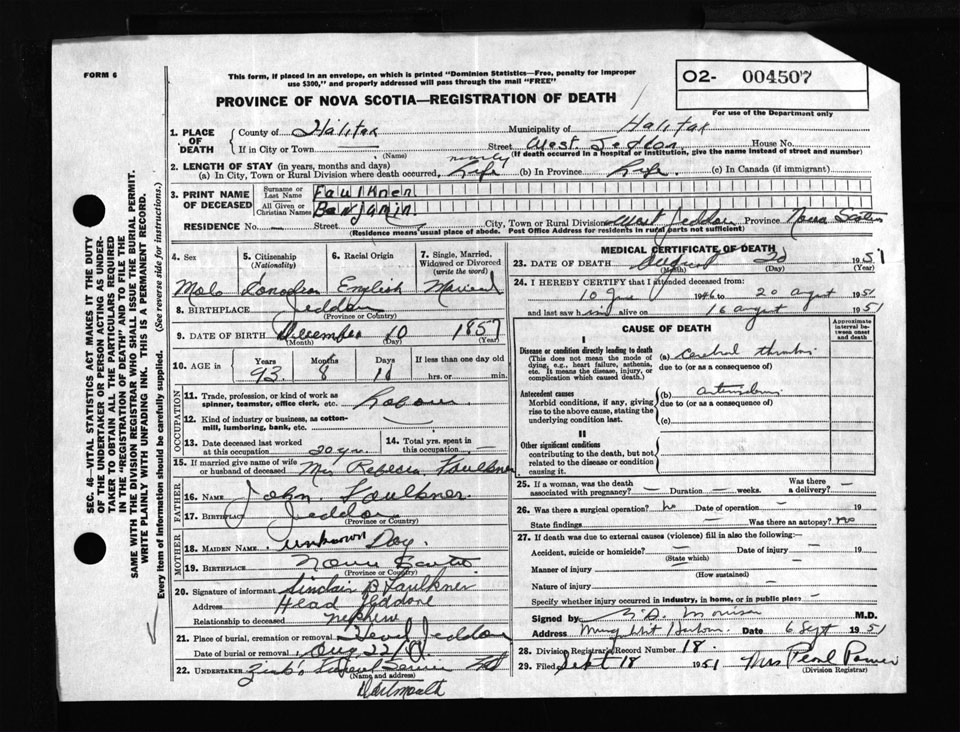 FORM 6
This form, if placed in an envelope, on which is printed "Dominion Statistics—Free, penalty for improper
use $300," and properly addressed will pass through the mail "FREE"
O2- 004507
For use of the Department only
PROVINCE OF NOVA SCOTIA—REGISTRATION OF DEATH
1. PLACE OF DEATH
County of Halifax Municipality of Halifax
If in City or Town (Name) Street West Jeddore House No.
(If death occurred in a hospital or institution, give the name instead of street and number)
2. LENGTH OF STAY (in years, months and days)
(a) In City, Town or Rural Division where death occurred, nearly Life (b) In Province Life. (c) In Canada (if immigrant)
3. PRINT NAME OF DECEASED
Surname or Last Name Faulkner
All Given or Christian Names Benjamin
RESIDENCE No. — Street City, Town or Rural Division West Jeddore Province Nova Scotia
(Residence means usual place of abode. Post Office Address for residents in rural parts not sufficient)
4. Sex
5. Citizenship (Nationality)
6. Racial Origin
7. Single, Married, Widowed or Divorced (write the word)
Male Canadian English Married
8. BIRTHPLACE Jeddore
(Province or Country)
9. DATE OF BIRTH December 10 1857
(Month) (Day) (Year)
10. AGE in Years Months Days If less than one day old
93 8 hrs. or min.
OCCUPATION
11. Trade, profession, or kind of work as
spinner, teamster, office clerk, etc. Laborer
12. Kind of industry or business, as cotton-
mill, lumbering, bank, etc.
13. Date deceased last worked
at this occupation 20 yrs.
14. Total yrs. spent in
this occupation —
15. If married give name of wife
or husband of deceased Mrs Rebecca Faulkner
FATHER
16. NAME John Faulkner
17. BIRTHPLACE Jeddore
(Province or Country)
MOTHER
18. MAIDEN NAME unknown Day.
19. BIRTHPLACE Nova Scotia
(Province or Country)
20. Signature of informant Sinclair B Faulkner
Address Head Jeddore
Relationship to deceased nephew
21. Place of burial, cremation or removal Jeddore
Date of burial or removal Aug 22/51
22. UNDERTAKER Zink's Funeral Service Ltd
(Name and address)
Dartmouth
MEDICAL CERTIFICATE OF DEATH
23. DATE OF DEATH August 20 1951
(Month) (Day) (Year)
24. I HEREBY CERTIFY that I attended deceased from:
10 June 1946 to 20 August 1951
and last saw him alive on 16 August 1951
CAUSE OF DEATH
Approximate interval between onset and death
I
Disease or condition directly leading to death
(This does not mean the mode of
dying, e.g., heart failure, asthenia,
etc. It means the disease, injury, or
complication which caused death.)
(a) Cerebral thrombosis
due to (or as a consequence of)
Antecedent causes
Morbid conditions, if any, giving
rise to the above cause, stating the
underlying condition last.
(b)
due to (or as a consequence of)
(c)
II
Other significant conditions
contributing to the death, but not
related to the disease or condition
causing it.
25. If a woman, was the death
associated with pregnancy? — Duration weeks. Was there
a delivery? —
26. Was there a surgical operation? no Date of operation — 19
State findings — Was there an autopsy? no
27. If death was due to external causes (violence) fill in also the following:—
Accident, suicide or homicide? — Date of injury — 19
(State which)
Manner of injury
(How sustained)
Nature of injury —
Specify whether injury occurred in industry, in home, or in public place —
Signed by Morrison M.D.
Address Musquodoboit Harbour Date 6 Sept 1951
28. Division Registrar's Record Number 18.
29. Filed Sept 18 1951 Mrs Pearl Power
(Division Registrar)
SEC. 46—VITAL STATISTICS ACT MAKES IT THE DUTY
OF THE UNDERTAKER OR PERSON ACTING AS UNDER-
TAKER TO OBTAIN ALL THE PARTICULARS REQUIRED
IN THE "REGISTRATION OF DEATH" AND TO FILE THE
SAME WITH THE DIVISION REGISTRAR WHO SHALL ISSUE THE BURIAL PERMIT.
WRITE PLAINLY WITH UNFADING INK. THIS IS A PERMANENT RECORD.
Every item of information should be carefully supplied. (See reverse side for instructions.)